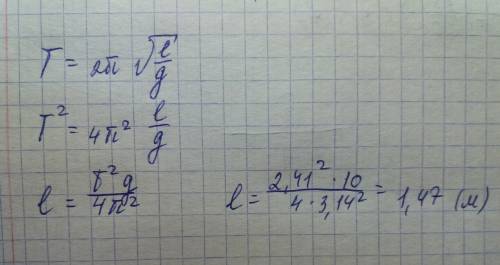 T = 2π √(l/g)
T² = 4π² l/g
l = T²g/4π²
l = 2,41² · 10/4 · 3,14² = 1,47 (м)